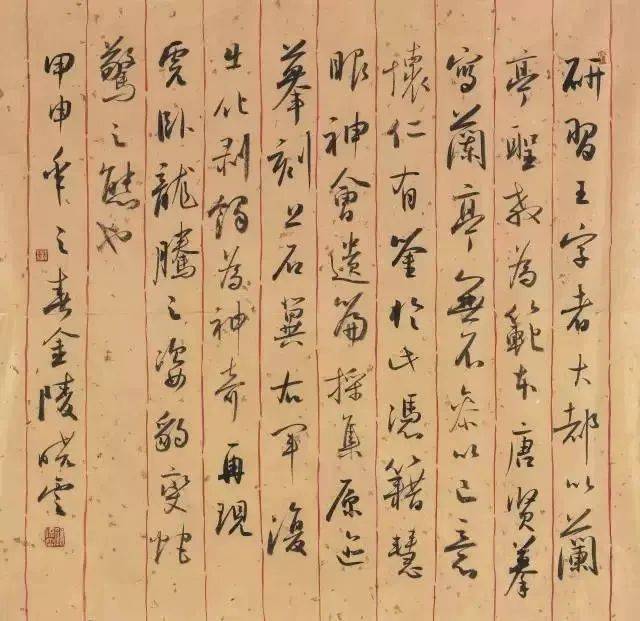 研習王字者大都以蘭
亭聖教為範本唐賢摹
寫蘭亭無不參以己意
懷仁有鉴於此憑籍慧
眼神會遺篇採集原迹
摹刻上石冀右軍復
生化剥蝕為神奇再現
虎卧龍騰之姿豹變蛇
驚之態也
甲申年之春金陵曉雲